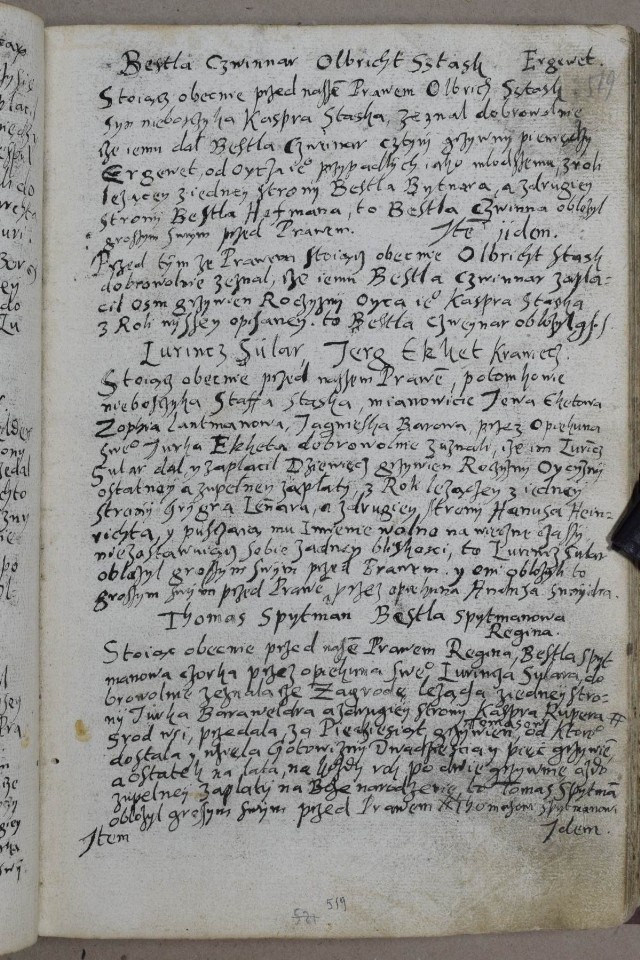 Bestla Czwinnar Olbricht Sstash. Ergewet.
519
Stoiącz obecnie przed nassē Prawem Olbrich Sstash
syn nieboszyka Kaspra Stasha, zeznal dobrowolnie
isze iemu dal Bestla Czwinar cztyry grzywny pieniędzy
Ergewet, od oycza ie° przypadlych iako mlodszemu, z roli
lezączey z iedney strony Bestla Bytnara, a z drugiey
strony Bestla Hofmana, to Bestla Czwinna oblożyl
groszym swym przed Prawem. Itē ijdem.
Przed tym ze Prawem stoiącz obecnie Olbricht Stash
dobrowolnie zeznal, isze iemu Bestla Czwinnar zapla-
cil osm grzywien Roczyzny Oyca ie° Kaspra Stasha
z Roli wyssey opisaney. to Bestla Czweynar oblożyl
Lurincz Sular, Jerg Ekhet Krawiecz.
Stoiącz obecnie przed nassem Prawē, potomkowie
nieboszyka Staffa Stasha, mianowicie Jewa Chetowa
Zophia Lantmanowa, Jagnieshka Barowa, przez Opiekuna
swe° Jurka Ekheta dobrowolnie zuznali, isze im Luricz
Sular dal, y zaplacil Dziewięcz grzywien Roczyzny Oyczyzny
ostatney a zupelney zaplaty, z Rok lezączey z iedney
strony Grygra Lenara, a z drugiey strony Hanusa Hein-
richta, y pusczaią mu Imienie wolno na wieczne czassy
niezostawuiącz sobie zadney bliskosci, to Lurencz Sular
oblożyl groszym swym przed Prawem. y oni oblożyli to
groszym swym przed Prawē, przez opiekuna
Thomas Spytman Bestla Spytmanowa
Regina.
Stoiącz obecnie przed nassē Prawem Regina, Bestla Spyt
manowa czorka przez opiekuna swe° Lurincza Sulara, do
browolnie zeznala sze Zagrodę lezącą z iedney stro-
ny Jurka Baraweldra a z drugiey strony Kaspra Rupera #
srod wsi, przedala za Piecdziesiąt grzywien, od ktore
# Tomasowi
dostala y wzięla Gotowizny Dwadziescia y piec grzywiē,
a ostatek na lata, na kozdy rok po dwie grzywnie asz do
zupelney zaplaty na Boze narodzenie, to Tomas Spytmā
oblożyl groszym swym przed Prawem # Thomasowi Spytmanowi
Item Idem.
519
521